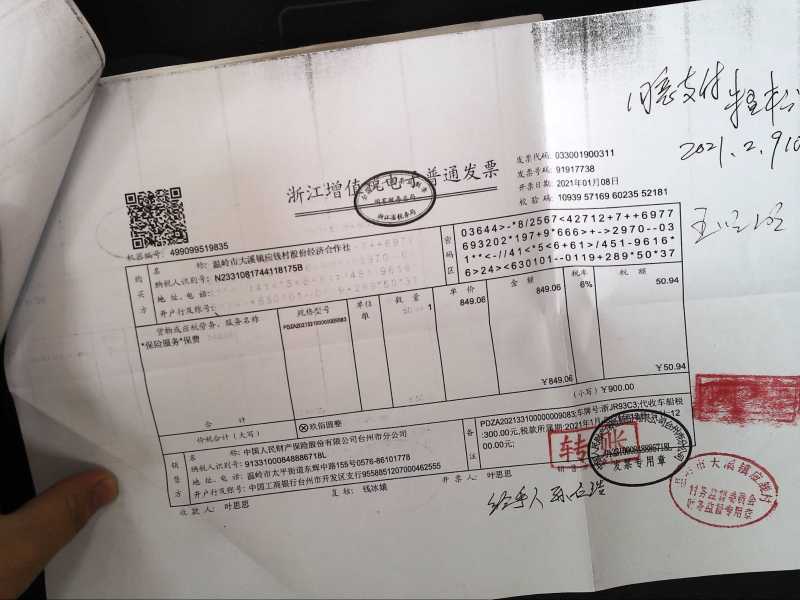 同意支付
2021.2.9
浙江增值税电子普通发票
国家税务总局
浙江省税务局
发票代码: 033001900311
发票号码: 91917738
开票日期: 2021年01月08日
校验码: 10939 57169 60235 52181
机器编号: 499099519835
购买方
名称: 温岭市大溪镇应钱村股份经济合作社
纳税人识别号: N2331081744118175B
地址、电话:
开户行及账号:
密码区
03644>-*8/2567<42712+7++6977
693202*197+9*666>+->2970--03
1**<-//41<*5<6+61>/451-9616*
6>24><630101--0119+289*50*37
货物或应税劳务、服务名称 规格型号 单位 数量 单价 金额 税率 税额
*保险服务*保费 PDZA20213310000009083 单 1 849.06 849.06 6% 50.94
合计 ¥849.06 ¥50.94
价税合计（大写） ⊗玖佰圆整 （小写）¥900.00
销售方
名称: 中国人民财产保险股份有限公司台州市分公司
纳税人识别号: 91331000848886718L
地址、电话: 温岭市太平街道东辉中路155号0576-86101778
开户行及账号: 中国工商银行台州市开发区支行9558851207000462555
备注
PDZA20213310000009083;车牌号:浙JR93C3;代收车船税
:300.00元,税款所属期:2021年1月
00.00元;
收款人: 叶思思 复核: 钱冰嬿 开票人: 叶思思
转账
91331000848886718L
发票专用章
经手人
村务监督委员会
财务监督专用章